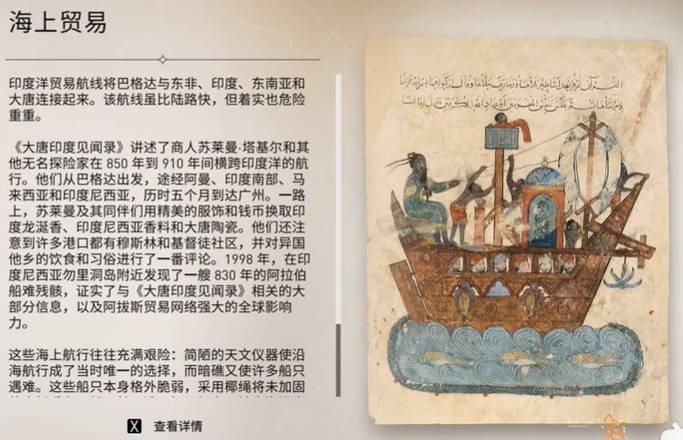 海上贸易
印度洋贸易航线将巴格达与东非、印度、东南亚和
大唐连接起来。该航线虽比陆路快，但着实也危险
重重。
《大唐印度见闻录》讲述了商人苏莱曼·塔基尔和其
他无名探险家在 850 年到 910 年间横跨印度洋的航
行。他们从巴格达出发，途经阿曼、印度南部、马
来西亚和印度尼西亚，历时五个月到达广州。一路
上，苏莱曼及其同伴们用精美的服饰和钱币换取印
度龙涎香、印度尼西亚香料和大唐陶瓷。他们还注
意到许多港口都有穆斯林和基督徒社区，并对异国
他乡的饮食和习俗进行了一番评论。1998 年，在印
度尼西亚勿里洞岛附近发现了一艘 830 年的阿拉伯
船难残骸，证实了与《大唐印度见闻录》相关的大
部分信息，以及阿拔斯贸易网络强大的全球影响
力。
这些海上航行往往充满艰险：简陋的天文仪器使沿
海航行成了当时唯一的选择，而暗礁又使许多船只
遇难。这些船只本身格外脆弱，采用椰绳将未加固
X 查看详情